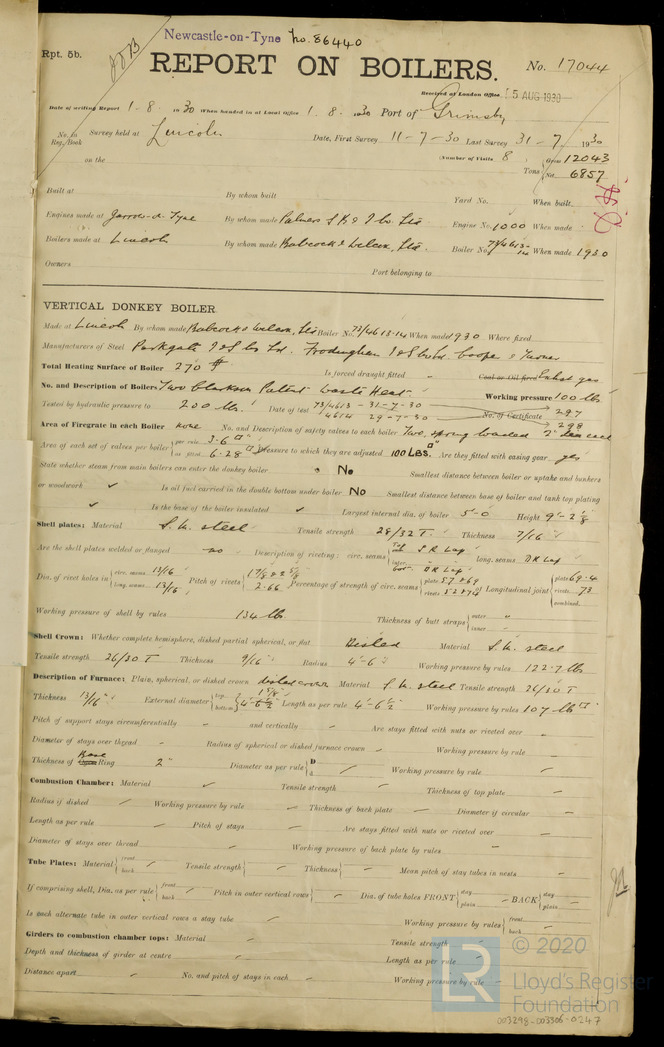 Newcastle-on-Tyne No. 86440
Rpt. 5b.
REPORT ON BOILERS.
No. 17044
Received at London Office 5 AUG 1930
Date of writing Report 1 - 8 - 1930 When handed in at Local Office 1 . 8 . 1930 Port of Grimsby
No. in Reg. Book Survey held at Lincoln Date, First Survey 11-7-30 Last Survey 31-7-1930
on the (Number of Visits 8) Tons Gross 12043 Net 6857
Built at By whom built Yard No. When built
Engines made at Jarrow-on-Tyne By whom made Palmers S.B. & I. Co. Ltd Engine No. 1000 When made
Boilers made at Lincoln By whom made Babcock & Wilcox, Ltd. Boiler No. 73/4613-14 When made 1930
Owners Port belonging to
VERTICAL DONKEY BOILER.
Made at Lincoln By whom made Babcock & Wilcox, Ltd Boiler No. 73/4613-14 When made 1930 Where fixed
Manufacturers of Steel Parkgate I & S Co Ld. Frodingham I & S Co Ld. Cooper & Turner
Total Heating Surface of Boiler 270 Is forced draught fitted - Coal or Oil fired Exhaust gas
No. and Description of Boilers Two Clarkson Patent Waste Heat Working pressure 100 lbs
Tested by hydraulic pressure to 200 lbs. Date of test 73/4613 - 31-7-30 4614 29-7-30 No. of Certificate 297 298
Area of Firegrate in each Boiler none No. and Description of safety valves to each boiler Two, spring loaded 2"
Area of each set of valves per boiler per rule 3.6 as fitted 6.28 Pressure to which they are adjusted 100 Lbs. Are they fitted with easing gear yes
State whether steam from main boilers can enter the donkey boiler No Smallest distance between boiler or uptake and bunkers
or woodwork ✓ Is oil fuel carried in the double bottom under boiler No Smallest distance between base of boiler and tank top plating
✓ Is the base of the boiler insulated ✓ Largest internal dia. of boiler 5'-0 Height 9'-2⅛
Shell plates: Material S.M. steel Tensile strength 28/32 T. Thickness 7/16"
Are the shell plates welded or flanged no Description of riveting: circ. seams S R Lap D R Lap long. seams D R Lap
Dia. of rivet holes in circ. seams 13/16 long. seams 13/16 Pitch of rivets 2.66 Percentage of strength of circ. seams plate 57 & 69 rivets Longitudinal joint plate 69.4 rivets 73 combined
Working pressure of shell by rules 134 lb Thickness of butt straps outer inner
Shell Crown: Whether complete hemisphere, dished partial spherical, or flat Dished Material S.M. steel
Tensile strength 26/30 T Thickness 9/16" Radius 4'-6" Working pressure by rules 122.7 lb
Description of Furnace: Plain, spherical, or dished crown dished crown Material S.M. steel Tensile strength 26/30 T
Thickness 13/16" External diameter top bottom 4'-6½ Length as per rule 4'-6½ Working pressure by rules 107 lb
Pitch of support stays circumferentially - and vertically - Are stays fitted with nuts or riveted over
Diameter of stays over thread - Radius of spherical or dished furnace crown - Working pressure by rule -
Thickness of Base Ring 2" Diameter as per rule D d Working pressure by rule -
Combustion Chamber: Material ✓ Tensile strength - Thickness of top plate -
Radius if dished - Working pressure by rule - Thickness of back plate - Diameter if circular -
Length as per rule - Pitch of stays - Are stays fitted with nuts or riveted over -
Diameter of stays over thread - Working pressure of back plate by rules -
Tube Plates: Material front back Tensile strength - Thickness - Mean pitch of stay tubes in nests -
If comprising shell, Dia. as per rule front back Pitch in outer vertical rows Dia. of tube holes FRONT stay plain BACK stay plain
Is each alternate tube in outer vertical rows a stay tube - Working pressure by rules front back
Girders to combustion chamber tops: Material - Tensile strength -
Depth and thickness of girder at centre - Length as per rule -
Distance apart - No. and pitch of stays in each - Working pressure by rule -
© 2020
LR
Lloyd's Register
Foundation
003298-003306-0247